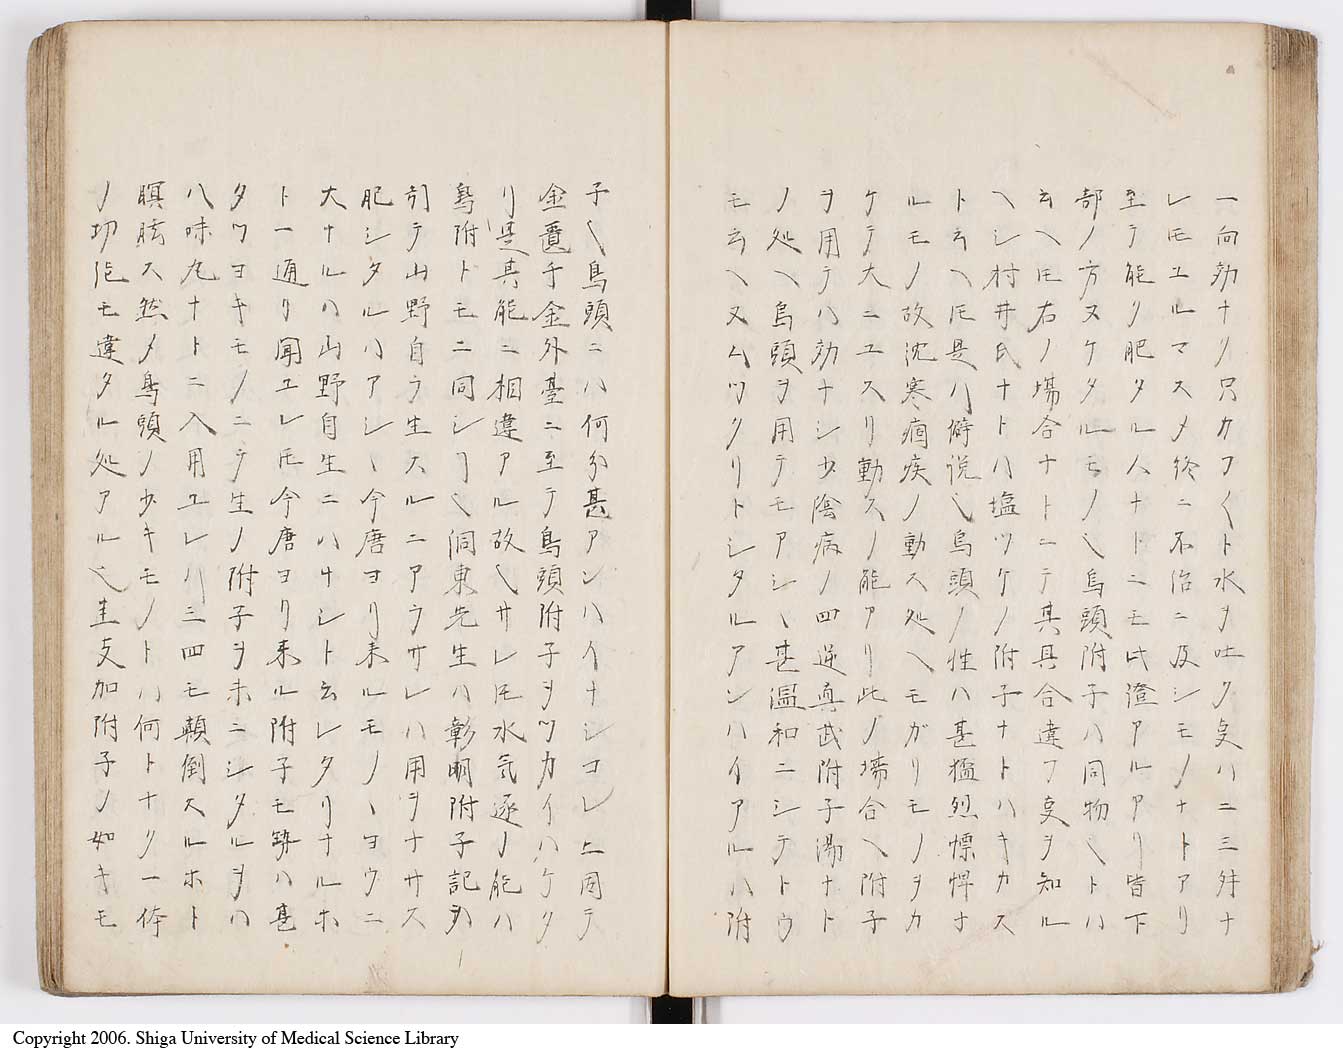 一向効ナリ只カフ〱ト水ヲ吐ク叓ハ二三舛ナ
レモユルマスメ終ニ不治ニ及シモノナトアリ
至テ能ク肥タル人ナトニモ此澄アルアリ皆下
部ノ方ヌケタルモノ也烏頭附子ハ同物也トハ
云ヘ𪜈右ノ場合ナトニテ其具合違フ叓ヲ知ル
ヘシ村井氏ナトハ塩ツケノ附子ナトハキカス
ト云ヘ𪜈是ハ僻説也烏頭ノ性ハ甚猛烈慓悍ナ
ルモノ故沈寒痼疾ノ動ス処ヘモガリモノヲカ
ケテ大ニユスリ動スノ能アリ此ノ場合ヘ附子
ヲ用テハ効ナシ少陰病ノ四逆真武附子湯ナト
ノ処ヘ烏頭ヲ用テモアシヽ甚温和ニシテトウ
モ云ヘ又ムツクリトシタルアンハイアルハ附
子也烏頭ニハ何分甚アンハイナシコレニ因テ
金匱千金外臺ニ至テ烏頭附子ヲツカイハケタ
リ是其能ニ相違アル故也サレ𪜈水気逐ノ能ハ
烏附トモニ同シリ也洞東先生ハ彰明附子記ヲ
引テ山野自ラ生スルニアラサレハ用ヲナサス
肥シタルハアシヽ今唐ヨリ来ルモノヽヨウニ
大ナルハ山野自生ニハナシト云レタリナルホ
ト一通リ聞ユレ𪜈今唐ヨリ来ル附子モ勢ハ甚
タツヨキモノニテ生ノ附子ヲホニシタルヲハ
八味丸ナトニ入用ユレハ三四モ顛倒スルホト
瞑眩ス然メ烏頭ノ少キモノトハ何トナク一体
ノ切㡯モ違タル処アル也圭支加附子ノ如キモ
Copyright 2006. Shiga University of Medical Science Library